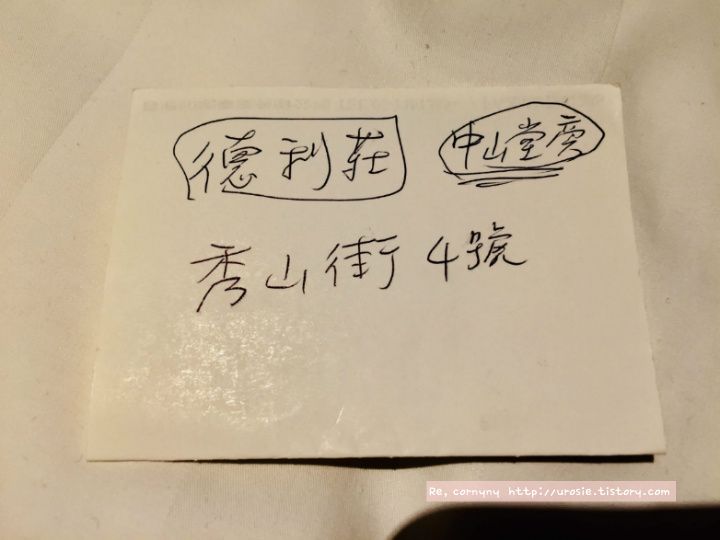 德利莊 中山堂旁
秀山街4號
Re, cornyny http://urosie.tistory.com